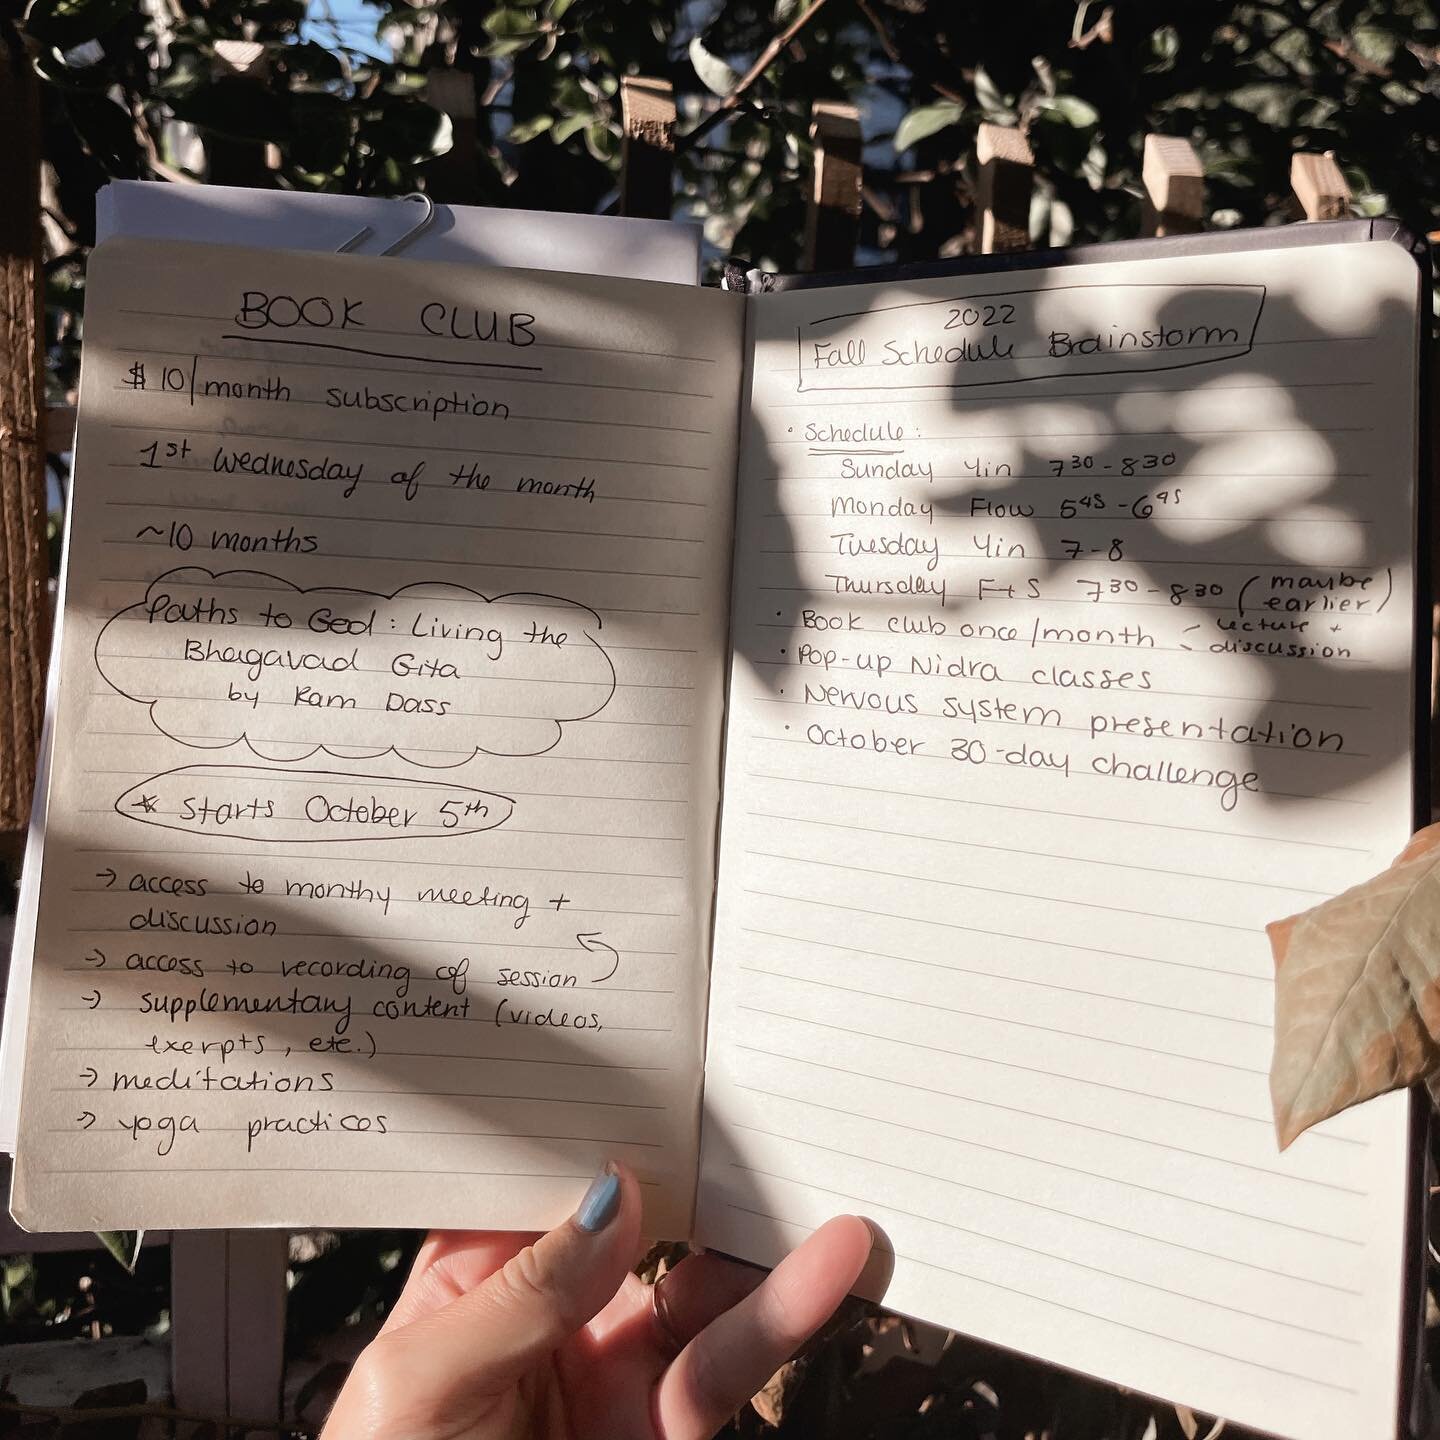 BOOK CLUB
$10/month subscription
1st Wednesday of the month
~10 months
Paths to God: Living the
Bhagavad Gita
by Ram Dass
* Starts October 5th
→ access to monthy meeting +
discussion
→ access to recording of session
→ supplementary content (videos,
exerpts, etc.)
→ meditations
→ yoga practices
2022
Fall Schedule Brainstorm
• Schedule:
Sunday Yin 730-830
Monday Flow 545-645
Tuesday Yin 7-8
Thursday F+S 730-830 (maybe earlier)
• Book club once/month - lecture + discussion
• Pop-up Nidra classes
• Nervous system presentation
• October 30-day challenge